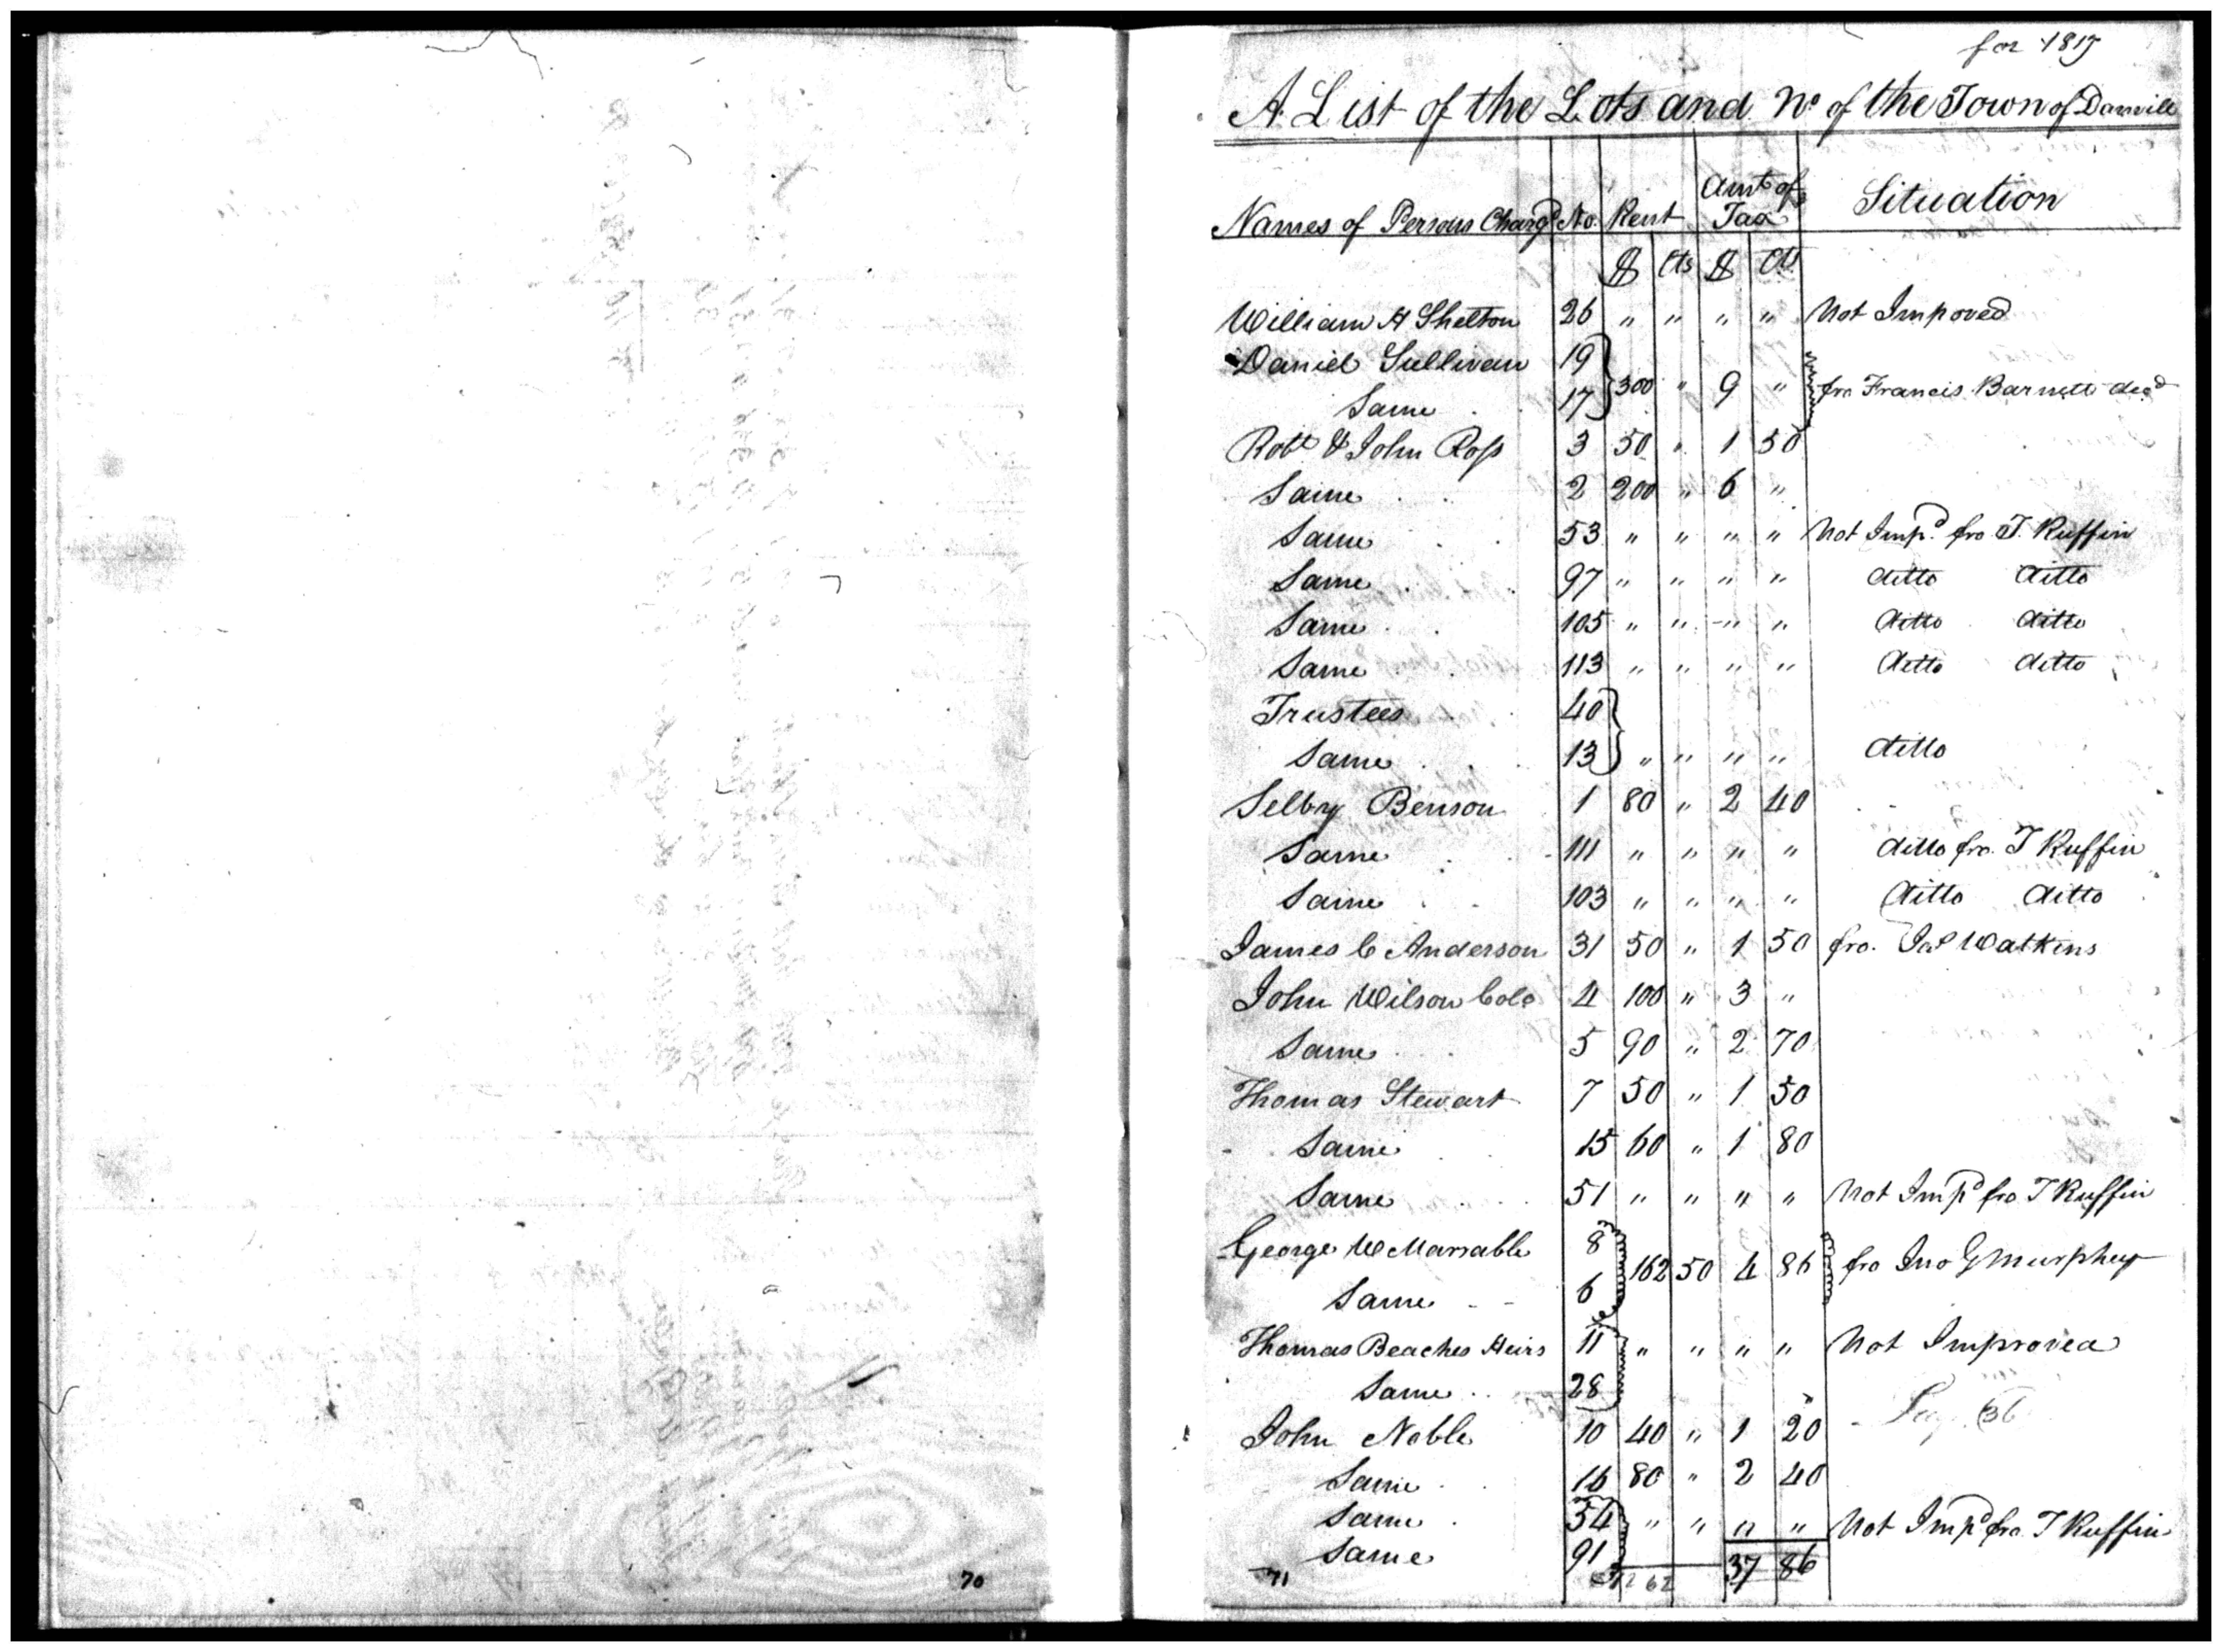 for 1817
A List of the Lots and No of the Town of Danville
Names of Persons Chargd No. Rent Amt of Tax Situation
$ Cts $ Cts
William H Shelton 26 " " " " Not Impoved
Daniel Sullivan 19
300 " 9 " fro Francis Barnett decd
Same 17
Robt & John Ross 3 50 " 1 50
Same 2 200 " 6 "
Same 53 " " " " Not Impd fro T. Ruffin
Same 97 " " " " ditto ditto
Same 105 " " " " ditto ditto
Same 113 " " " " ditto ditto
Trustees 40
Same 13 " " " " ditto
Selby Benson 1 80 " 2 40
Same 111 " " " " ditto fro. T Ruffin
Same 103 " " " " ditto ditto
James C Anderson 31 50 " 1 50 fro. Jas Watkins
John Wilson Colo 4 100 " 3 "
Same 5 90 " 2 70
Thomas Stewart 7 50 " 1 50
Same 15 60 " 1 80
Same 51 " " " " Not Impd fro T Ruffin
George W Marrable 8
162 50 4 86 fro Jno G Murphey
Same 6
Thomas Beaches Heirs 11 " " " " Not Improved
Same 28
John Noble 10 40 " 1 20
Same 16 80 " 2 40
Same 54 " " " " Not Impd fro. T Ruffin
Same 91
37 86
70
71